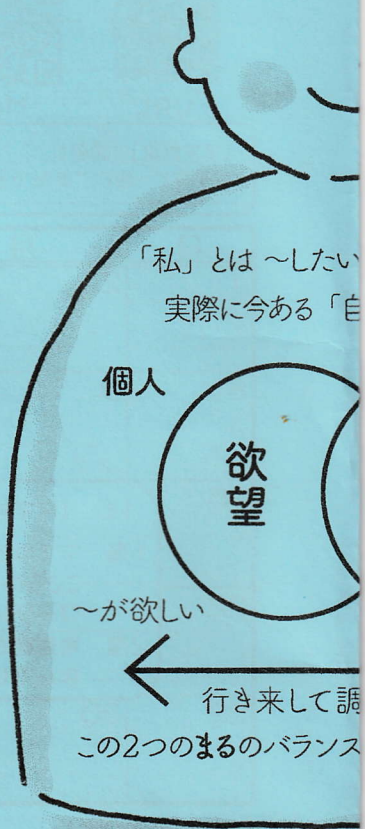 「私」とは ～したい
実際に今ある「自
個人
欲望
～が欲しい
行き来して調
この2つのまるのバランス